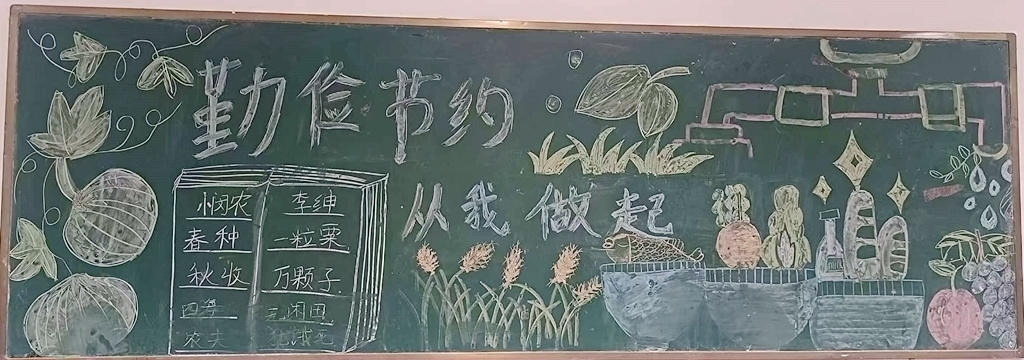 勤俭节约
从我做起
悯农 李绅
春种 一粒粟
秋收 万颗子
四海 无闲田
农夫 犹饿死